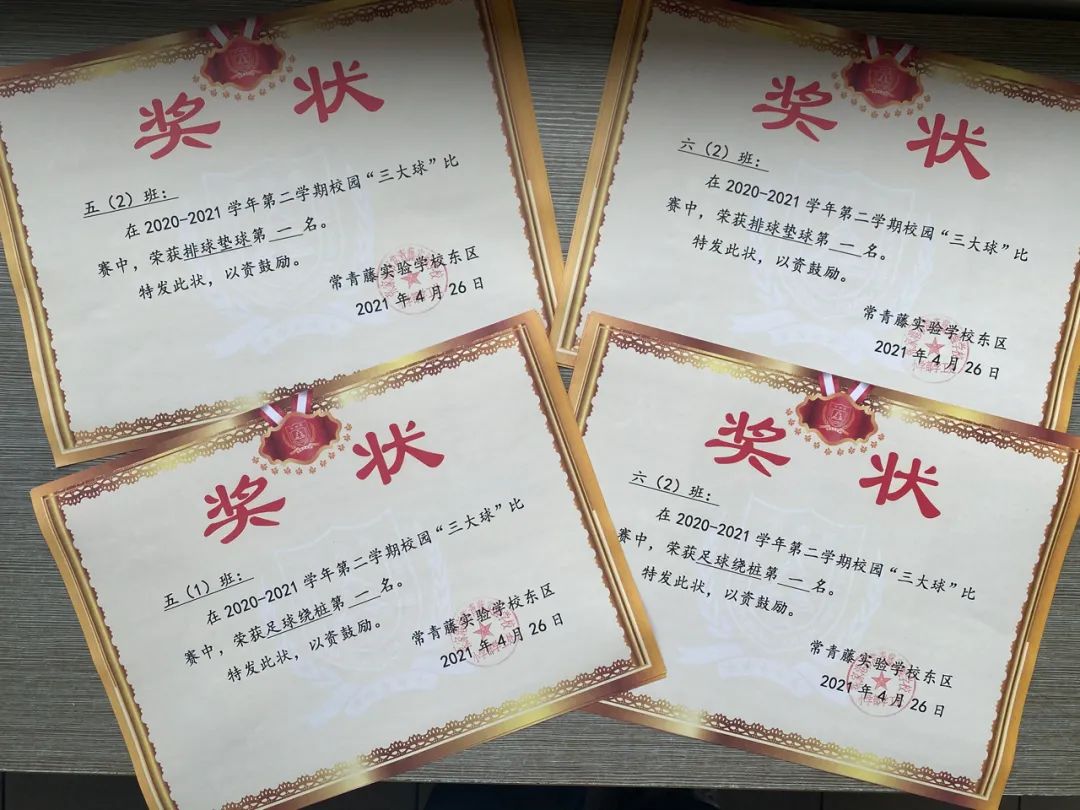 奖状
五（2）班：
在 2020-2021 学年第二学期校园“三大球”比
赛中，荣获排球垫球第 一 名。
特发此状，以资鼓励。
常青藤实验学校东区
2021 年 4 月 26 日
奖状
六（2）班：
在 2020-2021 学年第二学期校园“三大球”比
赛中，荣获排球垫球第 一 名。
特发此状，以资鼓励。
常青藤实验学校东区
2021 年 4 月 26 日
奖状
五（1）班：
在 2020-2021 学年第二学期校园“三大球”比
赛中，荣获足球绕桩第 一 名。
特发此状，以资鼓励。
常青藤实验学校东区
2021 年 4 月 26 日
奖状
六（2）班：
在 2020-2021 学年第二学期校园“三大球”比
赛中，荣获足球绕桩第 一 名。
特发此状，以资鼓励。
常青藤实验学校东区
2021 年 4 月 26 日